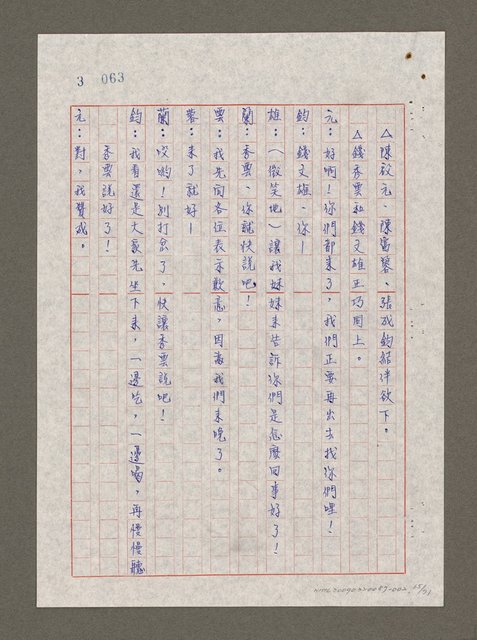 3 063
△陳啟元、陳富蓉、張成鈞結伴欲下。
△錢秀雲和錢文雄正巧同上。
元：好啊！你們都來了，我們正要再出去找你們哩！
鈞：錢文雄，你—
雄：（微笑地）讓我妹妹來告訴你們是怎麼回事好了！
蘭：秀雲，你就快說吧！
雲：我先向各位表示歉意，因為我們來晚了。
蓉：來了就好—
蘭：哎喲！別打岔了，快讓秀雲說吧！
鈞：我看還是大家先坐下來，一邊吃，一邊喝，再慢慢聽
秀雲說好了！
元：對，我贊成。